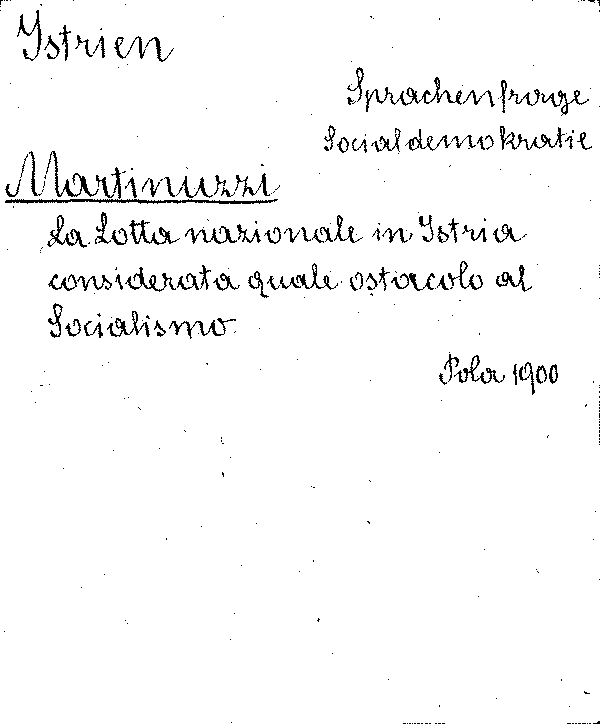 Istrien
Sprachenfrage
Socialdemokratie
Martinuzzi
La Lotta nazionale in Istria
considerata quale ostacolo al
Socialismo
Pola 1900